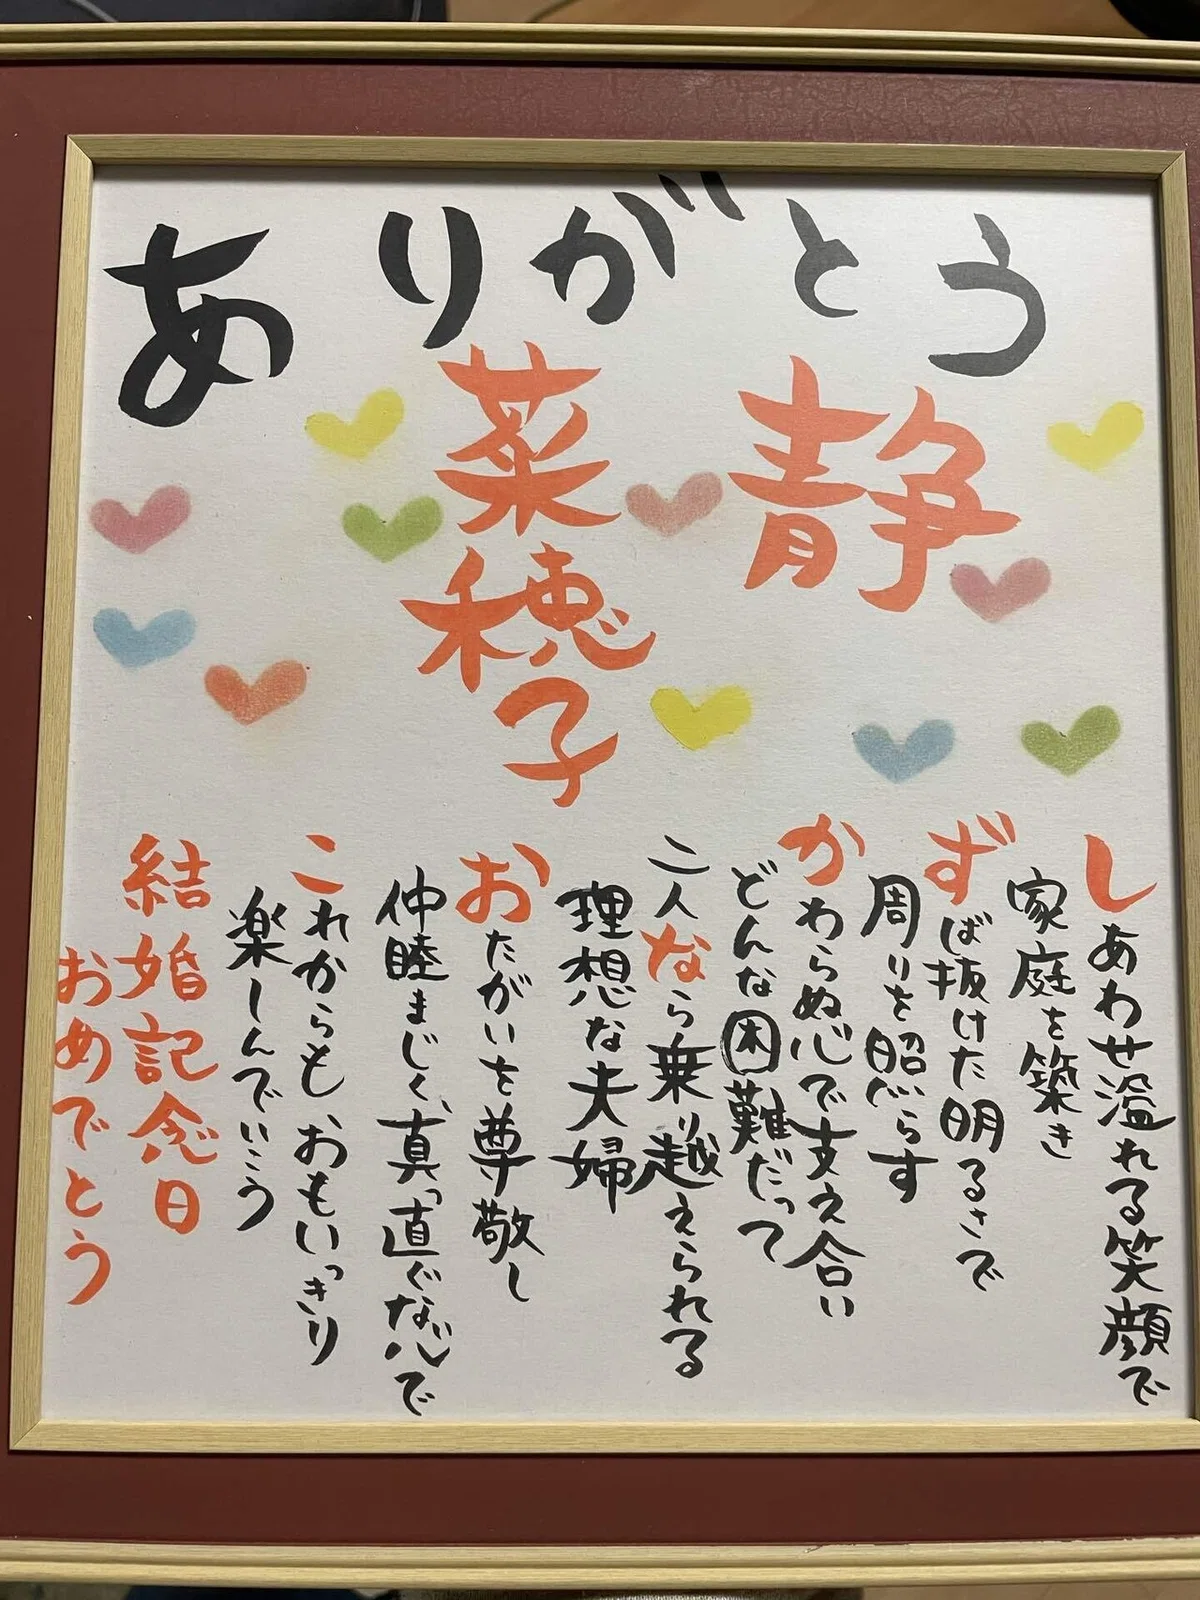 ありがとう
静
菜穂子
しあわせ溢れる笑顔で
家庭を築き
ずば抜けた明るさで
周りを照らす
かわらぬ心で支え合い
どんな困難だって
二人なら乗り越えられる
理想な夫婦
おたがいを尊敬し
仲睦まじく、真っ直ぐな心で
これからもおもいっきり
楽しんでいこう
結婚記念日
おめでとう